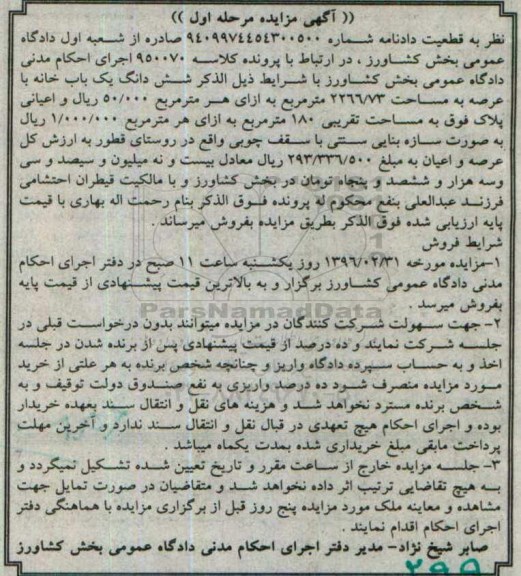 (( آگهی مزایده مرحله اول ))
نظر به قطعیت دادنامه شماره ۹۴۰۹۹۷۴۴۵۴۳۰۰۵۰۰ صادره از شعبه اول دادگاه
عمومی بخش کشاورز ، در ارتباط با پرونده کلاسه ۹۵۰۰۷۰ اجرای احکام مدنی
دادگاه عمومی بخش کشاورز با شرایط ذیل الذکر شش دانگ یک باب خانه با
عرصه به مساحت ۲۲۶۶/۷۳ مترمربع به ازای هر مترمربع ۵۰/۰۰۰ ریال و اعیانی
پلاک فوق به مساحت تقریبی ۱۸۰ مترمربع به ازای هر مترمربع ۱/۰۰۰/۰۰۰ ریال
به صورت سازه بنایی سنتی با سقف چوبی واقع در روستای قطور به ارزش کل
عرصه و اعیان به مبلغ ۲۹۳/۳۳۶/۵۰۰ ریال معادل بیست و نه میلیون و سیصد و سی
وسه هزار و ششصد و پنجاه تومان در بخش کشاورز و با مالکیت قیطران احتشامی
فرزند عبدالعلی بنفع محکوم له پرونده فوق الذکر بنام رحمت اله بهاری با قیمت
پایه ارزیابی شده فوق الذکر بطریق مزایده بفروش میرساند .
شرایط فروش
۱-مزایده مورخه ۱۳۹۶/۰۲/۳۱ روز یکشنبه ساعت ۱۱ صبح در دفتر اجرای احکام
مدنی دادگاه عمومی کشاورز برگزار و به بالاترین قیمت پیشنهادی از قیمت پایه
بفروش میرسد .
ParsNamadData
۲- جهت سهولت شرکت کنندگان در مزایده میتوانند بدون درخواست قبلی در
جلسه شرکت نمایند و ده درصد از قیمت پیشنهادی پس از برنده شدن در جلسه
اخذ و به حساب سپرده دادگاه واریز و چنانچه شخص برنده به هر علتی از خرید
مورد مزایده منصرف شود ده درصد واریزی به نفع صندوق دولت توقیف و به
شخص برنده مسترد نخواهد شد و هزینه های نقل و انتقال سند بعهده خریدار
بوده و اجرای احکام هیچ تعهدی در قبال نقل و انتقال سند ندارد و آخرین مهلت
پرداخت مابقی مبلغ خریداری شده بمدت یکماه میباشد .
۳- جلسه مزایده خارج از ساعت مقرر و تاریخ تعیین شده تشکیل نمیگردد و
به هیچ تقاضایی ترتیب اثر داده نخواهد شد و متقاضیان در صورت تمایل جهت
مشاهده و معاینه ملک مورد مزایده پنج روز قبل از برگزاری مزایده با هماهنگی دفتر
اجرای احکام اقدام نمایند .
صابر شیخ نژاد- مدیر دفتر اجرای احکام مدنی دادگاه عمومی بخش کشاورز